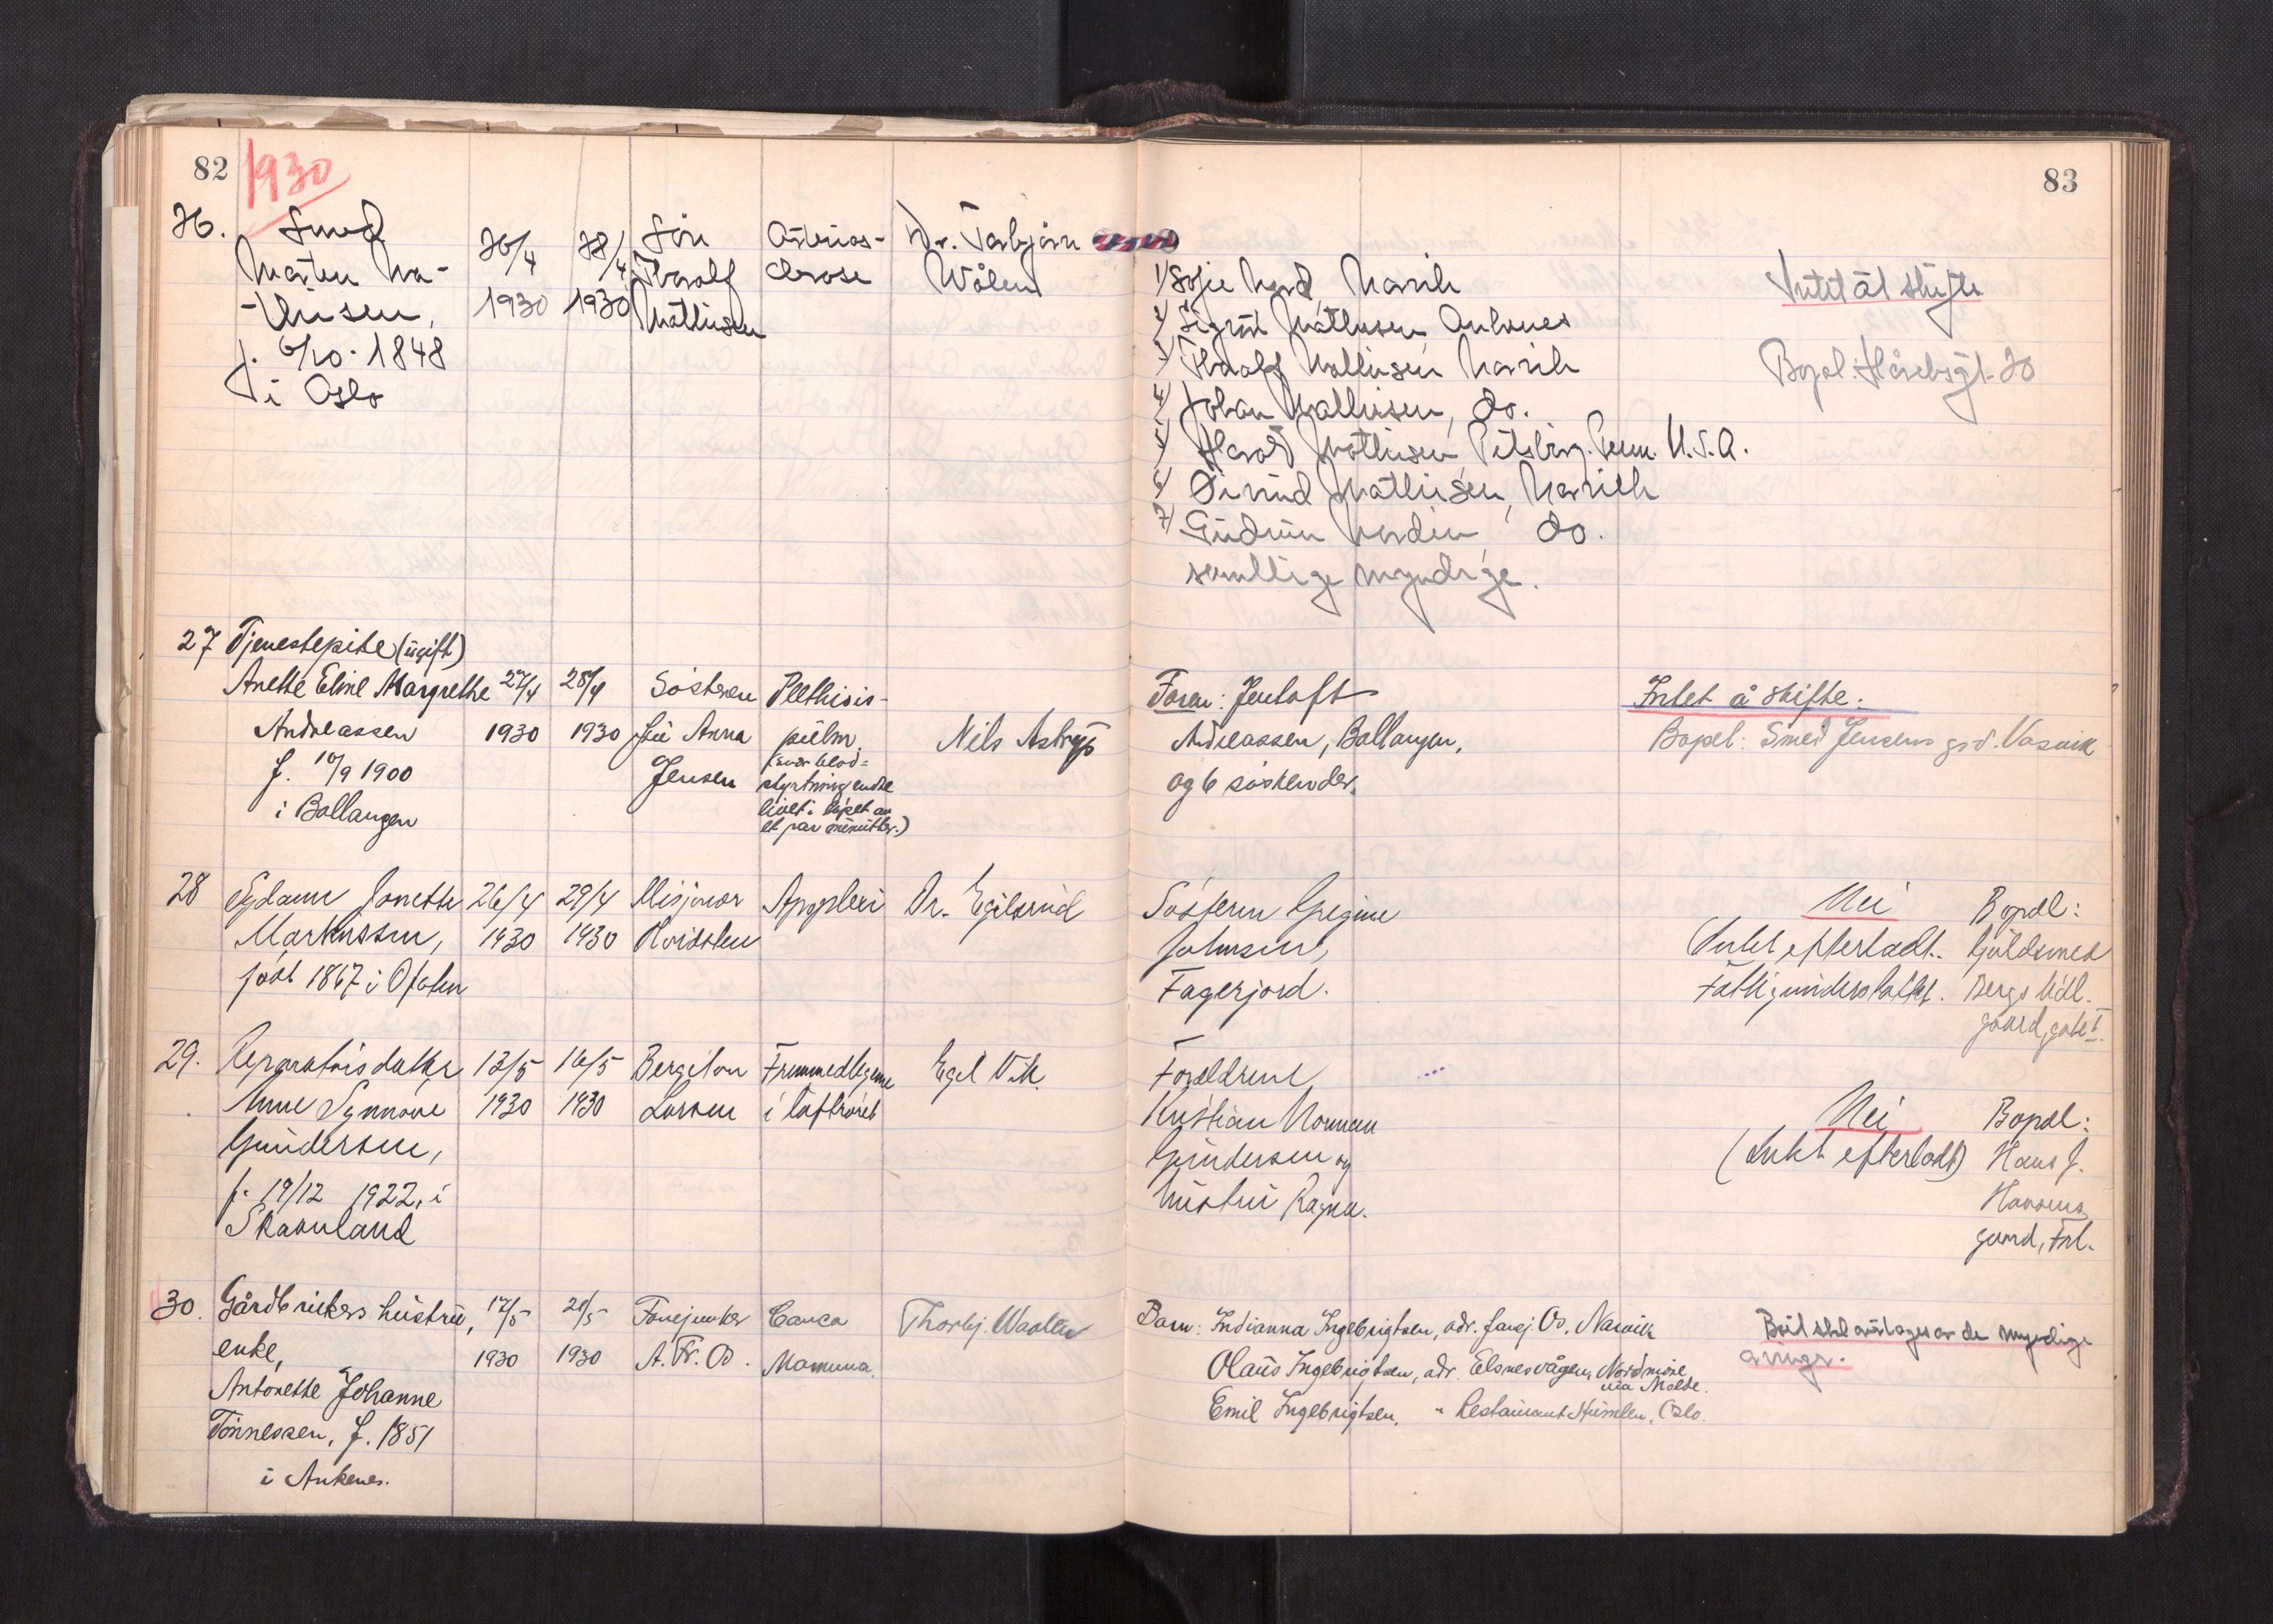 82
1930
83
26. Smed
Morten Ma-
-thisen,
f. 6/10-1848
i Oslo
26/4
1930
28/4
1930
Sön
Thoralf
Mathisen
Arterios-
clerose
Dr. Torbjörn
Wålen
1/ Sofie Narvik
2/ Sigrid Mathisen, Ankenes
3/ Thoralf Mathisen Narvik
4/ Johan Mathisen, do.
5/ Harald Mathisen, Pitsburg. Penn. U.S.A.
6/ Öivind Mathisen, Narvik
7/ Gudrun do.
samtlige myndige.
Intet åt skifte
Bopel: 20
27 Tjenestepike (ugift)
Anette Eline Margrethe
Andreassen
f. 10/9 1900
i Ballangen
27/4
1930
28/4
1930
Sösteren
fru Anna
Jensen
Pthisis-
pulm.
(svær blod=
styrtning endte
livet i löpet av
et par minutter.)
Nils Astrup
Faren: Jentoft
Andreassen, Ballangen,
og 6 söskender.
Intet å skifte.
Bopel: Smed Jensens grd. Vasvik
28 Sydame Janette
Markussen,
född 1867 i Ofoten
26/4
1930
29/4
1930
Misjonær
Hvidsten
Apoplexi
Dr. Egilsrud
Sösteren Gregine
Johnsen,
Fagerjord.
Nei
(Intet efterladt.
Fattigunderstöttet.
Bopel:
Guldsmed
Bergs
gaard,
29. Reparatörs datter
Anne Synnöve
Gundersen,
f. 19/12 1922, i
Skaanland
13/5
1930
16/5
1930
Bergiton
Larsen
Fremmedlegeme
i luftröret
Egil Vik
Foreldrene
Kristian Norman
Gundersen og
hustru Ragna.
Nei
(Intet efterladt)
Bopel:
Hans J.
Hansens
gaard, Frl.
30. Gårdbrukers hustru,
enke,
Antonette Johanne
Tönnessen, f. 1851
i Ankenes.
17/5
1930
20/5
1930
A. Fr. Os.
Canca
Mamma.
Thorbj. Waalen
Barn: Indianna Ingebrigtsen, adr. Os, Narvik
Olaus Ingebrigtsen, adr. Elsnesvågen, Nordmöre
via Molde.
Emil Ingebrigtsen, " Restaurant Humlen, Oslo.
Boet skal overtages av de myndige
arvinger.